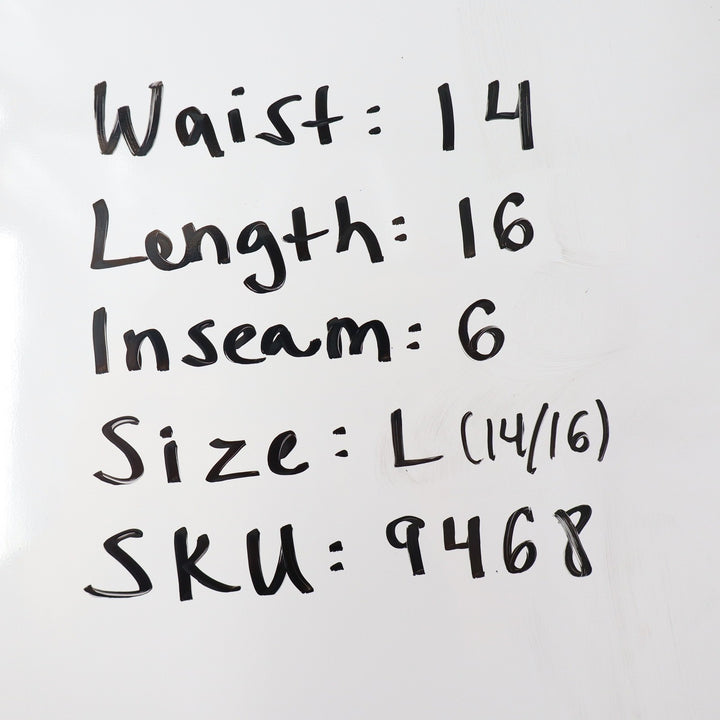 Waist: 14
Length: 16
Inseam: 6
Size: L (14/16)
SKU: 9468